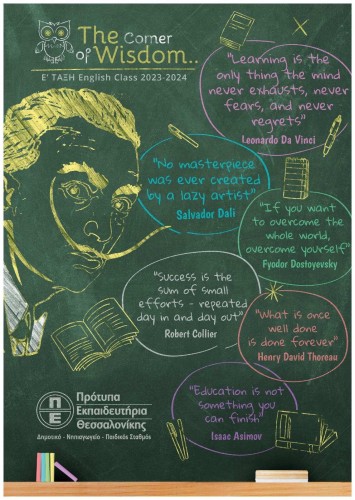 The Corner
of Wisdom..
Ε' ΤΑΞΗ English Class 2023-2024
"Learning is the
only thing the mind
never exhausts, never
fears, and never
regrets"
Leonardo Da Vinci
"No masterpiece
was ever created
by a lazy artist"
Salvador Dali
"If you want
to overcome the
whole world,
overcome yourself"
Fyodor Dostoyevsky
"Success is the
sum of small
efforts - repeated
day in and day out"
Robert Collier
"What is once
well done
is done forever"
Henry David Thoreau
"Education is not
something you
can finish"
Isaac Asimov
Π
Ε
Πρότυπα
Εκπαιδευτήρια
Θεσσαλονίκης
Δημοτικό - Νηπιαγωγείο - Παιδικός Σταθμός